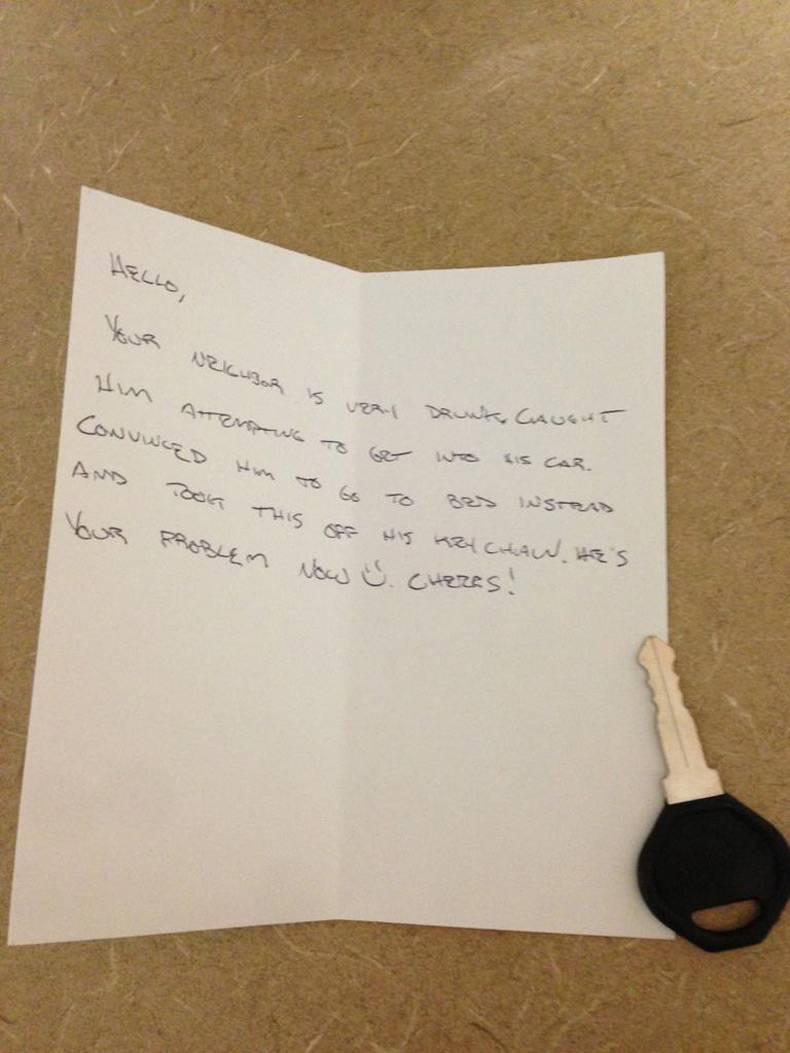 HELLO,
YOUR NEIGHBOR IS VERY DRUNK, CAUGHT
HIM ATTEMPTING TO GET INTO HIS CAR.
CONVINCED HIM TO GO TO BED INSTEAD
AND TOOK THIS OFF HIS KEYCHAIN. HE'S
YOUR PROBLEM NOW :). CHEERS!